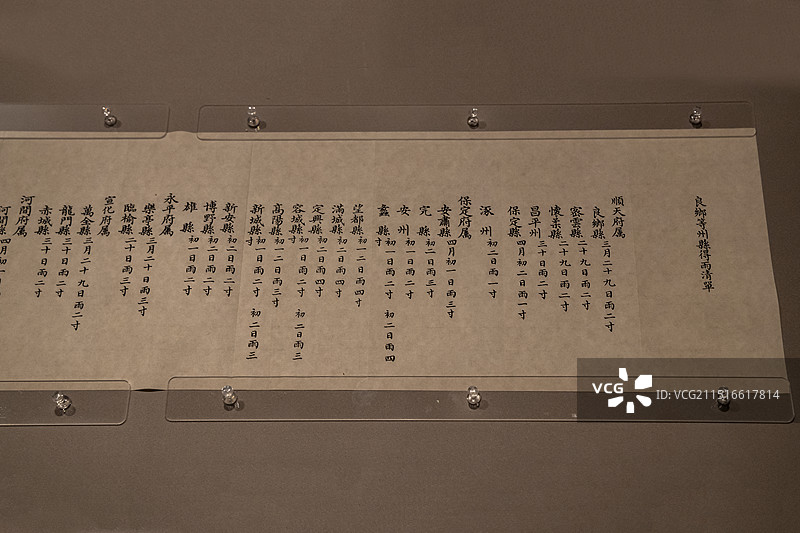 良鄉等州縣得雨清單
順天府屬
良鄉縣三月二十九日雨二寸
密雲縣二十九日雨二寸
懷柔縣二十九日雨二寸
昌平州三十日雨二寸
保定縣四月初二日雨一寸
涿州初二日雨一寸
保定府屬
安肅縣四月初一日雨三寸
完縣初二日雨三寸
安州初一日雨二寸
蠡縣初一日雨二寸 初二日雨四寸
望都縣初一日雨四寸
滿城縣初二日雨四寸
定興縣初一日雨四寸
容城縣初一日雨二寸 初二日雨三寸
高陽縣初一二日雨三寸
新城縣初一日雨二寸 初二日雨三寸
新安縣初二日雨二寸
博野縣初二日雨二寸
雄縣初一日雨二寸
永平府屬
樂亭縣三月二十日雨三寸
臨榆縣二十日雨三寸
宣化府屬
萬全縣三月二十九日雨二寸
龍門縣三十日雨二寸
赤城縣三十日雨二寸
河間府屬
河間縣四月初一日
VCG
ID:VCG211516617814